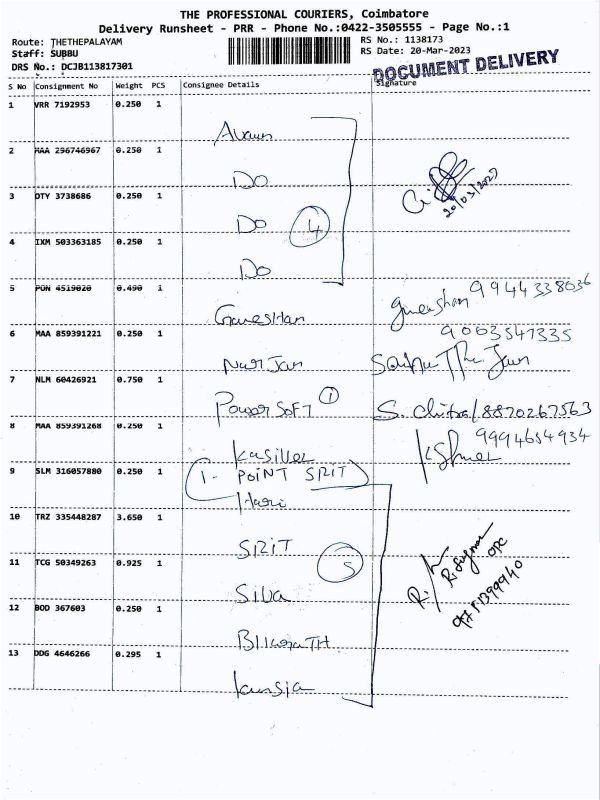 THE PROFESSIONAL COURIERS, Coimbatore
Delivery Runsheet - PRR - Phone No.:0422-3505555 - Page No.:1
Route: THETHEPALAYAM
RS No.: 1138173
Staff: SUBBU
RS Date: 20-Mar-2023
DRS No.: DCJB113817301
DOCUMENT DELIVERY
S No Consignment No Weight PCS Consignee Details Signature
1 VRR 7192953 0.250 1
2 MAA 296746967 0.250 1
DO
20/03/2023
3 DTY 3738686 0.250 1
DO 4
4 IXM 503363185 0.250 1
DO
5 PON 4519020 0.490 1
GaneshHan
9944338036
6 MAA 859391221 0.250 1
9003547335
NurJan
7 NLM 60426921 0.750 1
PowerSoFT 1 S. Chitra/8870267563
8 MAA 859391268 0.250 1
9994654934
9 SLM 316057880 0.250 1
1- POINT SRIT
Hari
10 TRZ 335448287 3.650 1
SRIT
11 TCG 50349263 0.925 1
5
Siba
12 BOD 367603 0.250 1
13 DDG 4646266 0.295 1